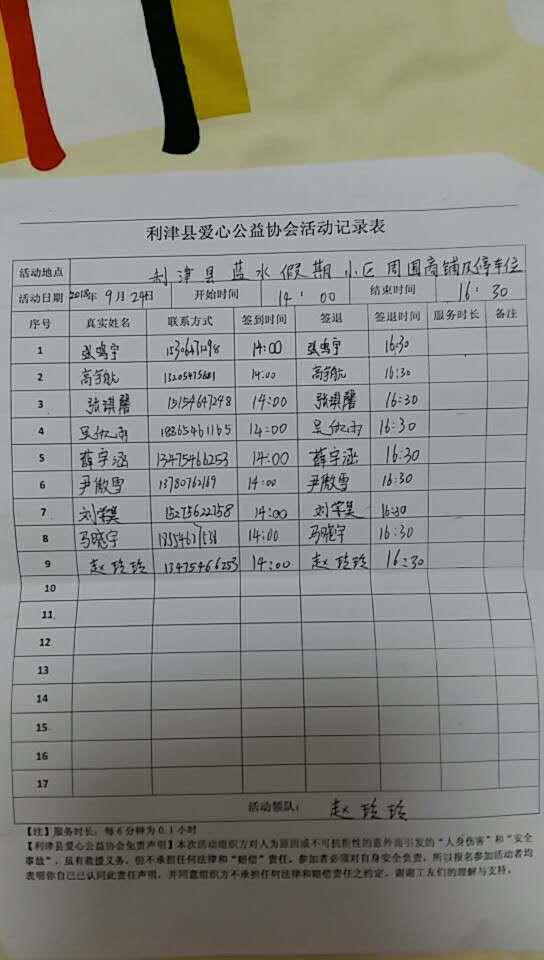 利津县爱心公益协会活动记录表
活动地点 利津县蓝水假期小区周围商铺及停车位
活动日期 2018年9月29日 开始时间 14:00 结束时间 16:30
序号 真实姓名 联系方式 签到时间 签退 签退时间 服务时长 备注
1 张鸣宇 14:00 张鸣宇 16:30
2 高宇航 13205475681 14:00 高宇航 16:30
3 张琪馨 15154647248 14:00 张琪馨 16:30
4 18865461165 14:00 16:30
5 薛宇涵 13475466253 14:00 薛宇涵 16:30
6 尹傲雪 13780762169 14:00 尹傲雪 16:30
7 15275622758 14:00 16:30
8 马晓宇 14:00 马晓宇 16:30
9 赵玲玲 13475466253 14:00 赵玲玲 16:30
10
11
12
13
14
15
16
17
活动领队: 赵玲玲
【注】服务时长:每6分钟为0.1小时
【利津县爱心公益协会免责声明】本次活动组织方对人为原因或不可抗拒性的意外而引发的“人身伤害”和“安全
事故”,虽有救援义务,但不承担任何法律和“赔偿”责任,参加者必须对自身安全负责,所以报名参加活动者均
表明你自己已认同此责任声明,并同意组织方不承担任何法律和赔偿责任之约定,谢谢工友们的理解与支持。